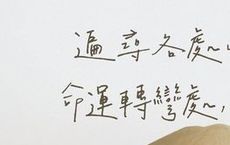 遍尋各處~
命運轉彎處~,